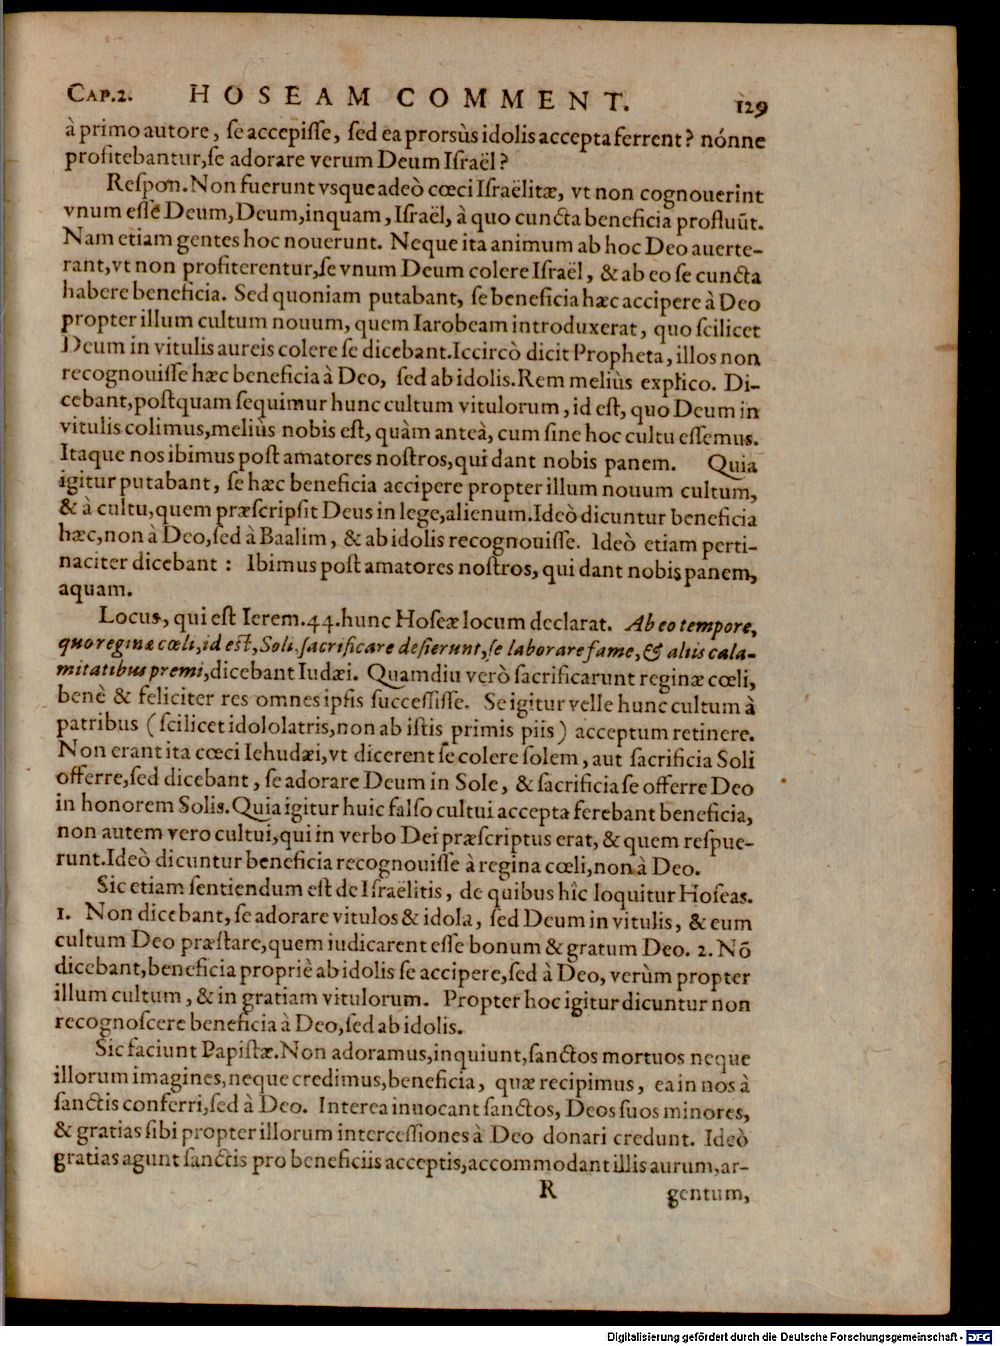 CAP.2. HOSEAM COMMENT. 129
à primo autore, ſe accepiſſe, ſed ea prorsùs idolis accepta ferrent? nónne
profitebantur, ſe adorare verum Deum Iſraël?
Reſpon. Non fuerunt vsque adeò cœci Iſraëlitæ, vt non cognouerint
vnum eſſe Deum, Deum, inquam, Iſraël, à quo cuncta beneficia profluũt.
Nam etiam gentes hoc nouerunt. Neque ita animum ab hoc Deo auerte-
rant, vt non profiterentur, ſe vnum Deum colere Iſraël, & ab eo ſe cuncta
habere beneficia. Sed quoniam putabant, ſe beneficia hæc accipere à Deo
propter illum cultum nouum, quem Iarobeam introduxerat, quo ſcilicet
Deum in vitulis aureis colere ſe dicebant. Iccircò dicit Propheta, illos non
recognouiſſe hæc beneficia à Deo, ſed ab idolis. Rem meliùs explico. Di-
cebant, poſtquam ſequimur hunc cultum vitulorum, id eſt, quo Deum in
vitulis colimus, meliùs nobis eſt, quàm anteà, cum ſine hoc cultu eſſemus.
Itaque nos ibimus poſt amatores noſtros, qui dant nobis panem. Quia
igitur putabant, ſe hæc beneficia accipere propter illum nouum cultum,
& à cultu, quem præſcripſit Deus in lege, alienum. Ideò dicuntur beneficia
hæc, non à Deo, ſed à Baalim, & ab idolis recognouiſſe. Ideò etiam perti-
naciter dicebant: Ibimus poſt amatores noſtros, qui dant nobis panem,
aquam.
Locus, qui eſt Ierem. 44. hunc Hoſeæ locum declarat. Ab eo tempore,
quo reginæ cœli, id eſt, Soli ſacrificare deſierunt, ſe laborare fame, & aliis cala-
mitatibus premi, dicebant Iudæi. Quamdiu verò ſacrificarunt reginæ cœli,
benè & feliciter res omnes ipſis ſucceſſiſſe. Se igitur velle hunc cultum à
patribus (ſcilicet idololatris, non ab iſtis primis piis) acceptum retinere.
Non erant ita cœci Iehudæi, vt dicerent ſe colere ſolem, aut ſacrificia Soli
offerre, ſed dicebant, ſe adorare Deum in Sole, & ſacrificia ſe offerre Deo
in honorem Solis. Quia igitur huic falſo cultui accepta ferebant beneficia,
non autem vero cultui, qui in verbo Dei præſcriptus erat, & quem reſpue-
runt. Ideò dicuntur beneficia recognouiſſe à regina cœli, non à Deo.
Sic etiam ſentiendum eſt de Iſraëlitis, de quibus hîc loquitur Hoſeas.
1. Non dicebant, ſe adorare vitulos & idola, ſed Deum in vitulis, & eum
cultum Deo præſtare, quem iudicarent eſſe bonum & gratum Deo. 2. Nõ
dicebant, beneficia propriè ab idolis ſe accipere, ſed à Deo, verùm propter
illum cultum, & in gratiam vitulorum. Propter hoc igitur dicuntur non
recognoſcere beneficia à Deo, ſed ab idolis.
Sic faciunt Papiſtæ. Non adoramus, inquiunt, ſanctos mortuos neque
illorum imagines, neque credimus, beneficia, quæ recipimus, ea in nos à
ſanctis conferri, ſed à Deo. Interea inuocant ſanctos, Deos ſuos minores,
& gratias ſibi propter illorum interceſſiones à Deo donari credunt. Ideò
gratias agunt ſanctis pro beneficiis acceptis, accommodant illis aurum, ar-
R gentum,
Digitalisierung gefördert durch die Deutsche Forschungsgemeinschaft - DFG